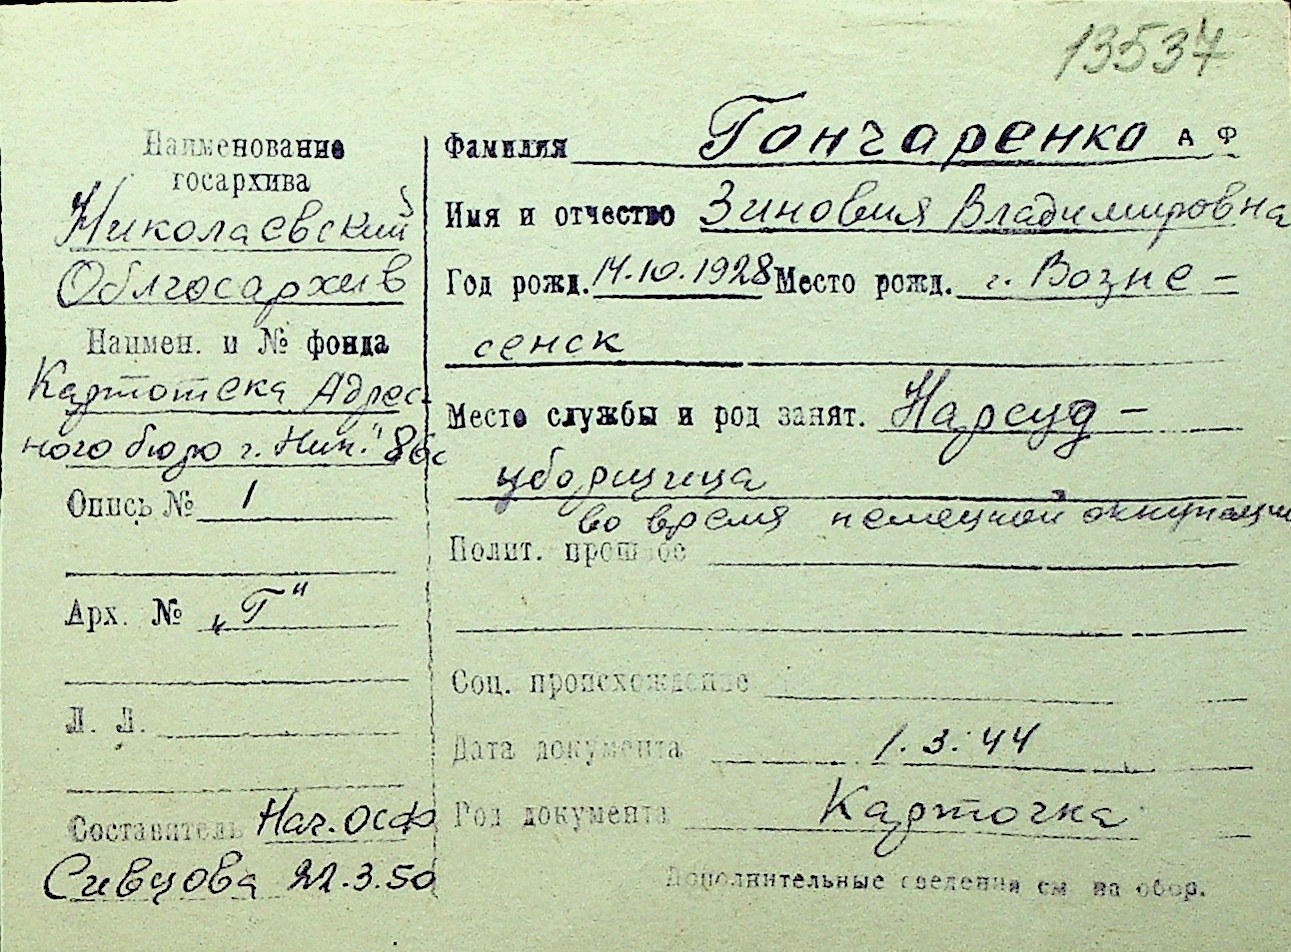 13537
Наименование
госархива
Николаевский
Облгосархив
Наимен. и № фонда
Картотека Адрес-
ного бюро г. Ник.
Опись № 1
Арх. № „Г"
Л. Л.
Составитель Нач. ОСФ
Сивцова 22.3.50
Фамилия Гончаренко А Ф
Имя и отчество Зиновия Владимировна
Год рожд. 14.10.1928 Место рожд. г. Возне-
сенск
Место службы и род занят. Нарсуд-
уборщица
во время немецкой оккупации
Полит. прошлое
Соц. происхождение
Дата документа 1.3.44
Род документа Карточка
Дополнительные сведения см на обор.